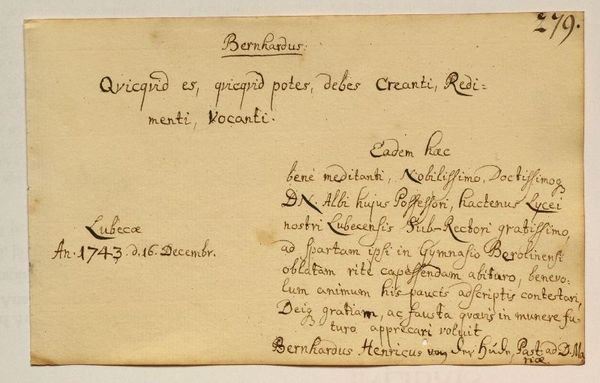 279.
Bernhardus:
Qvicqvid es, qvicqvid potes, debes Creanti, Redi-
menti, Vocanti.
Eadem hæc
bene meditanti, Nobilissimo, Doctissimoq
DN. Albi hujus Possessori, hactenus Lycei
nostri Lubecensis Sub-Rectori gratissimo,
ad Spartam ipsi in Gymnasio Berolinensi
oblatam rite capessendam abituro, benevo-
lum animum his paucis adscriptis contestari,
Deiq gratiam, ac fausta qvævis in munere fu-
turo apprecari voluit
Bernhardus Henricus von der Hude, Past. ad D. Ma
riæ
Lubecæ
An. 1743. d. 16. Decembr.